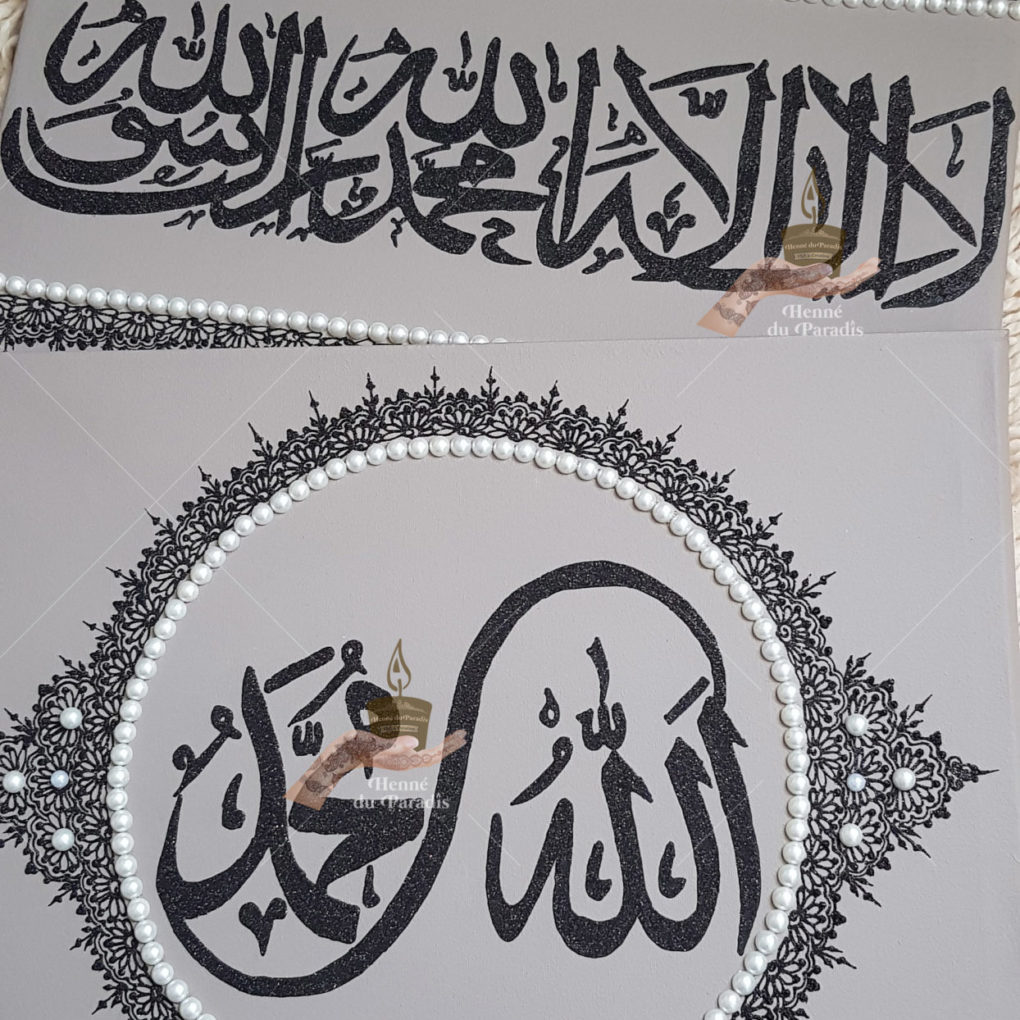 لا إله إلا الله محمد رسول الله
Henné du Paradis
Henné
du Paradis
الله
محمد
Henné du Paradis
Henné
du Paradis